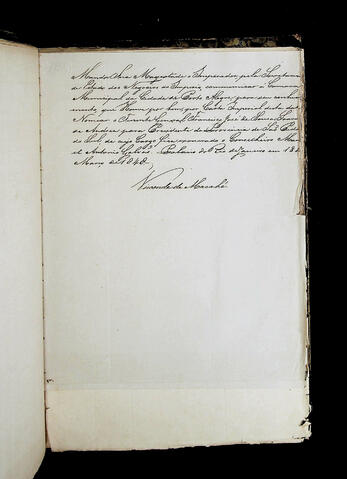 Manda Sua Magestade o Imperador, pela Secretaria
de Estado dos Negocios do Imperio communicar á Camara
Municipal da Cidade de Porto Alegre, para seu conheci
mento, que Houve por bem, por Carta Imperial desta data
Nomear o Tenente General Francisco José de Souza Soares
de Andrea para Presidente da Provincia de São Pedro
do Sul, de cujo Cargo fica exonerado o Conselheiro Mano
el Antonio Galvão. Palacio do Rio de Janeiro em de
Março de 1848.
Visconde de Macahé